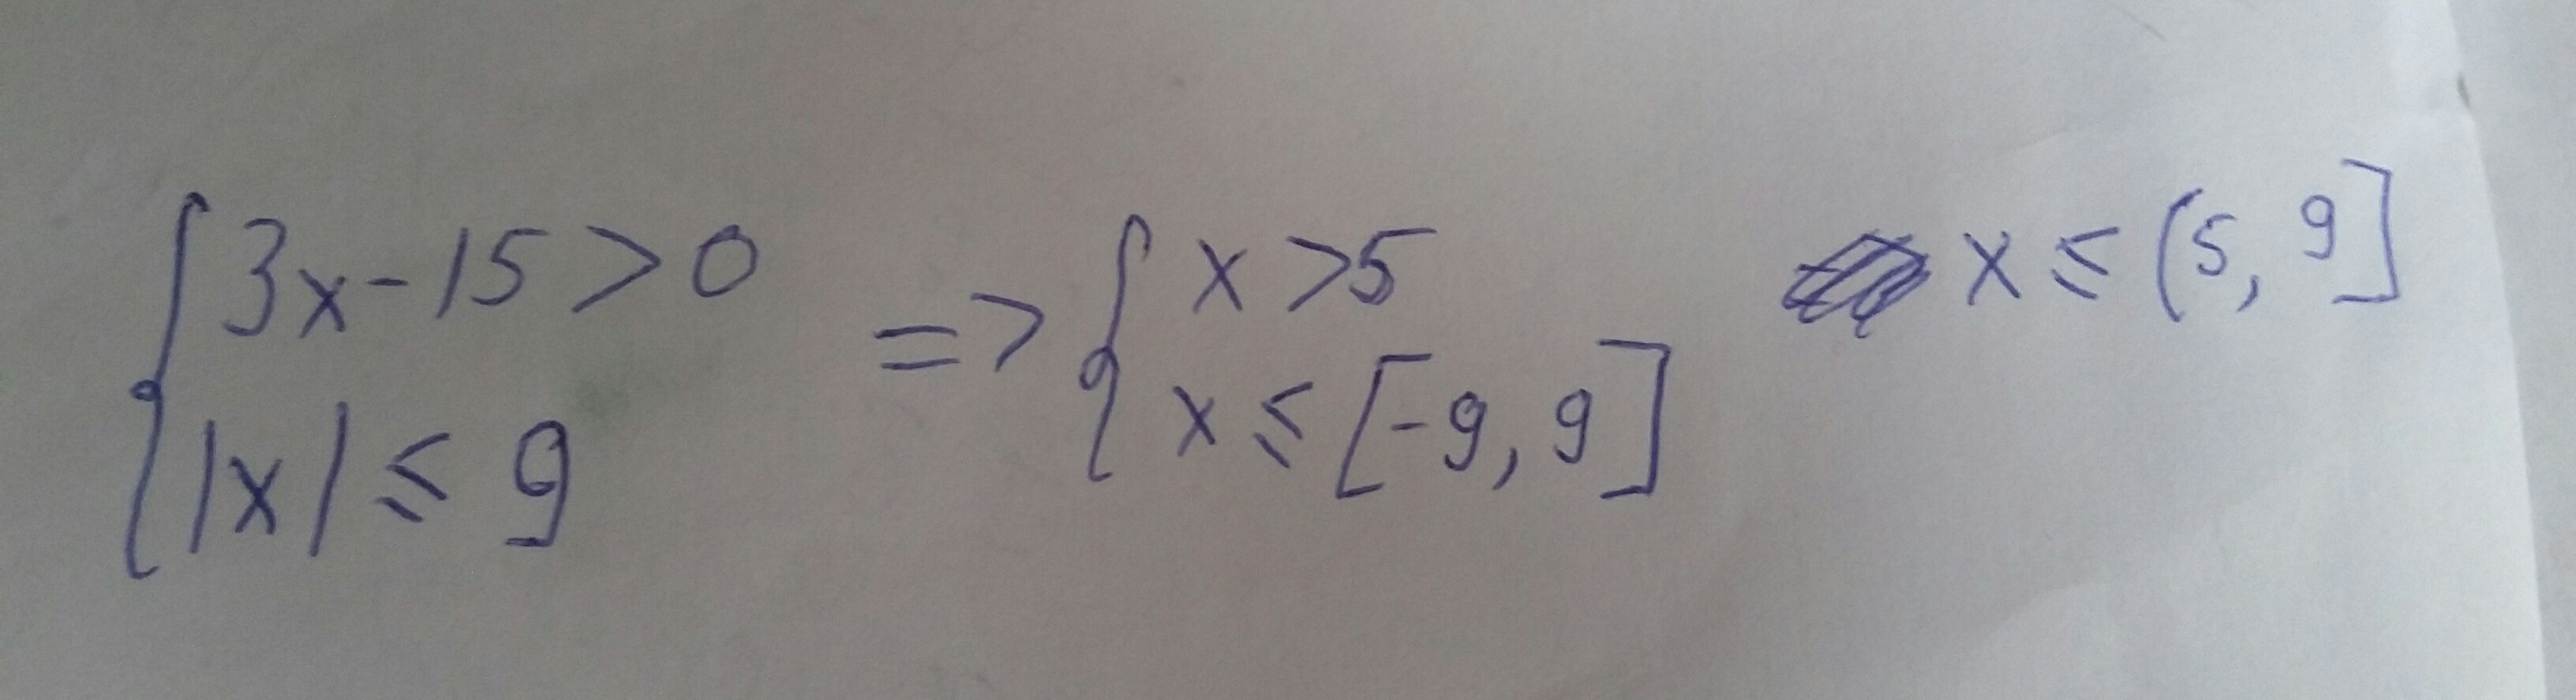 3x-15>0
|x|≤9
=>
x>5
x≤[-9,9]
x≤(5,9]